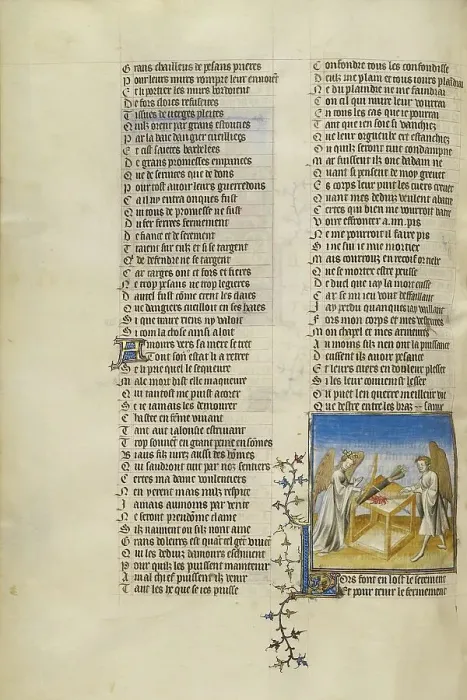 Grans chailleus de pesans prieres
Pour leurs murs rompre leur
Et portier les murs
De fors cloies refusees
Tissues de verges
Quilz orent par grans
Par la haie dangier cueillies
Et saietes barbelees
De grans promesses empanees
Que de seruices que de dons
Pour tost auoir leurs guerredons
Car il ny entra onques fust
Qui tous de promesse ne fust
Du fer ferrees fermement
De fiance et de serement
Traient sur eulz et il se targent
Qui de defendre ne se targent
Car targes ont et fors et fieres
Ne trop pesans ne trop legieres
Dautel fust come erent les claies
Que dangiers cueilloit en ses haies
Si que traire riens ny valoit
Si com la chose ainsi aloit
Amours vers sa mere se tret
tout son estat li a retret
Se li prie quel le sequeure
Male mort dist elle maqueure
Qui tantost me puist acorer
Se ie iamais les demourer
Chastee en feme viuant
Tant aut ialousie estriuant
Trop souuent en grant peine en somes
Biaus filz iurez aussi des homes
Quil saudront tuit par noz sentiers
Certes ma dame voulentiers
Nen yerent mais nulz respite
Iamais aumoins par verite
Ne seront preudome clame
Silz naiment ou silz nont ame
Grans doleurs est quant telz gens viuent
Qui les deduiz damours eschiuent
Pour quilz les puissent maintenir
A mal chief puissent ilz venir
Tant les he que se ies puisse
Confondre tous les confondisse
Deulz me plain et tous iours
Ne du plaindre ne me faindray
Con cil qui nuire leur vourray
En tous les cas que ie pourray
Tant que ien soie si vanchiez
Que leur orgueulz ert estanchiez
Ou quilz seront tuit condampne
Mar fussent ilz onc dadam ne
Quant si pensent de moy greuer
Es corps leur puist les cuers creuer
Quant mes deduiz veulent abatre
Certes qui bien me vourroit batre
Voire effronter a .iiii. pis
Ne me pourroit il faire pis
Si ne sui ie mie mortiex
Mais courrouz en recoif or tiex
Que se mortex estre peusse
De duel que iay la mort eusse
Car se mi ieu vont deffaillant
Iay perdu quanques iay vaillant
Fors mon corps et mes vestures
Mon chapel et mes armeures
Au moins silz nen ont la puissance
Deussent ilz auoir pesance
Et leurs cuers en douleur plesser
Silz les leur conuenist lesser
Ou puet len querre meilleur vie
Que destre entre les braz samie
Lors font en lost le serement
Et pour tenir le fermement